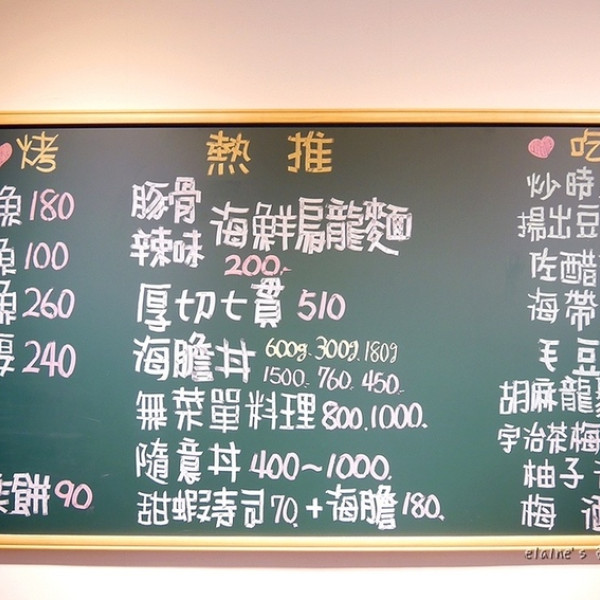 烤
魚180
魚100
魚260
厚240
餅90
熱推
豚骨
辣味
海鮮烏龍麵
200.-
厚切七貫510
海膽丼 600g. 300g. 180g
1500. 760. 450.
無菜單料理800.1000.
隨意丼400~1000.
甜蝦壽司70.+海膽180.
吃
炒時
揚出豆
佐醋
海帶
毛豆
胡麻龍
宇治茶梅
柚子
梅酒
elaine's